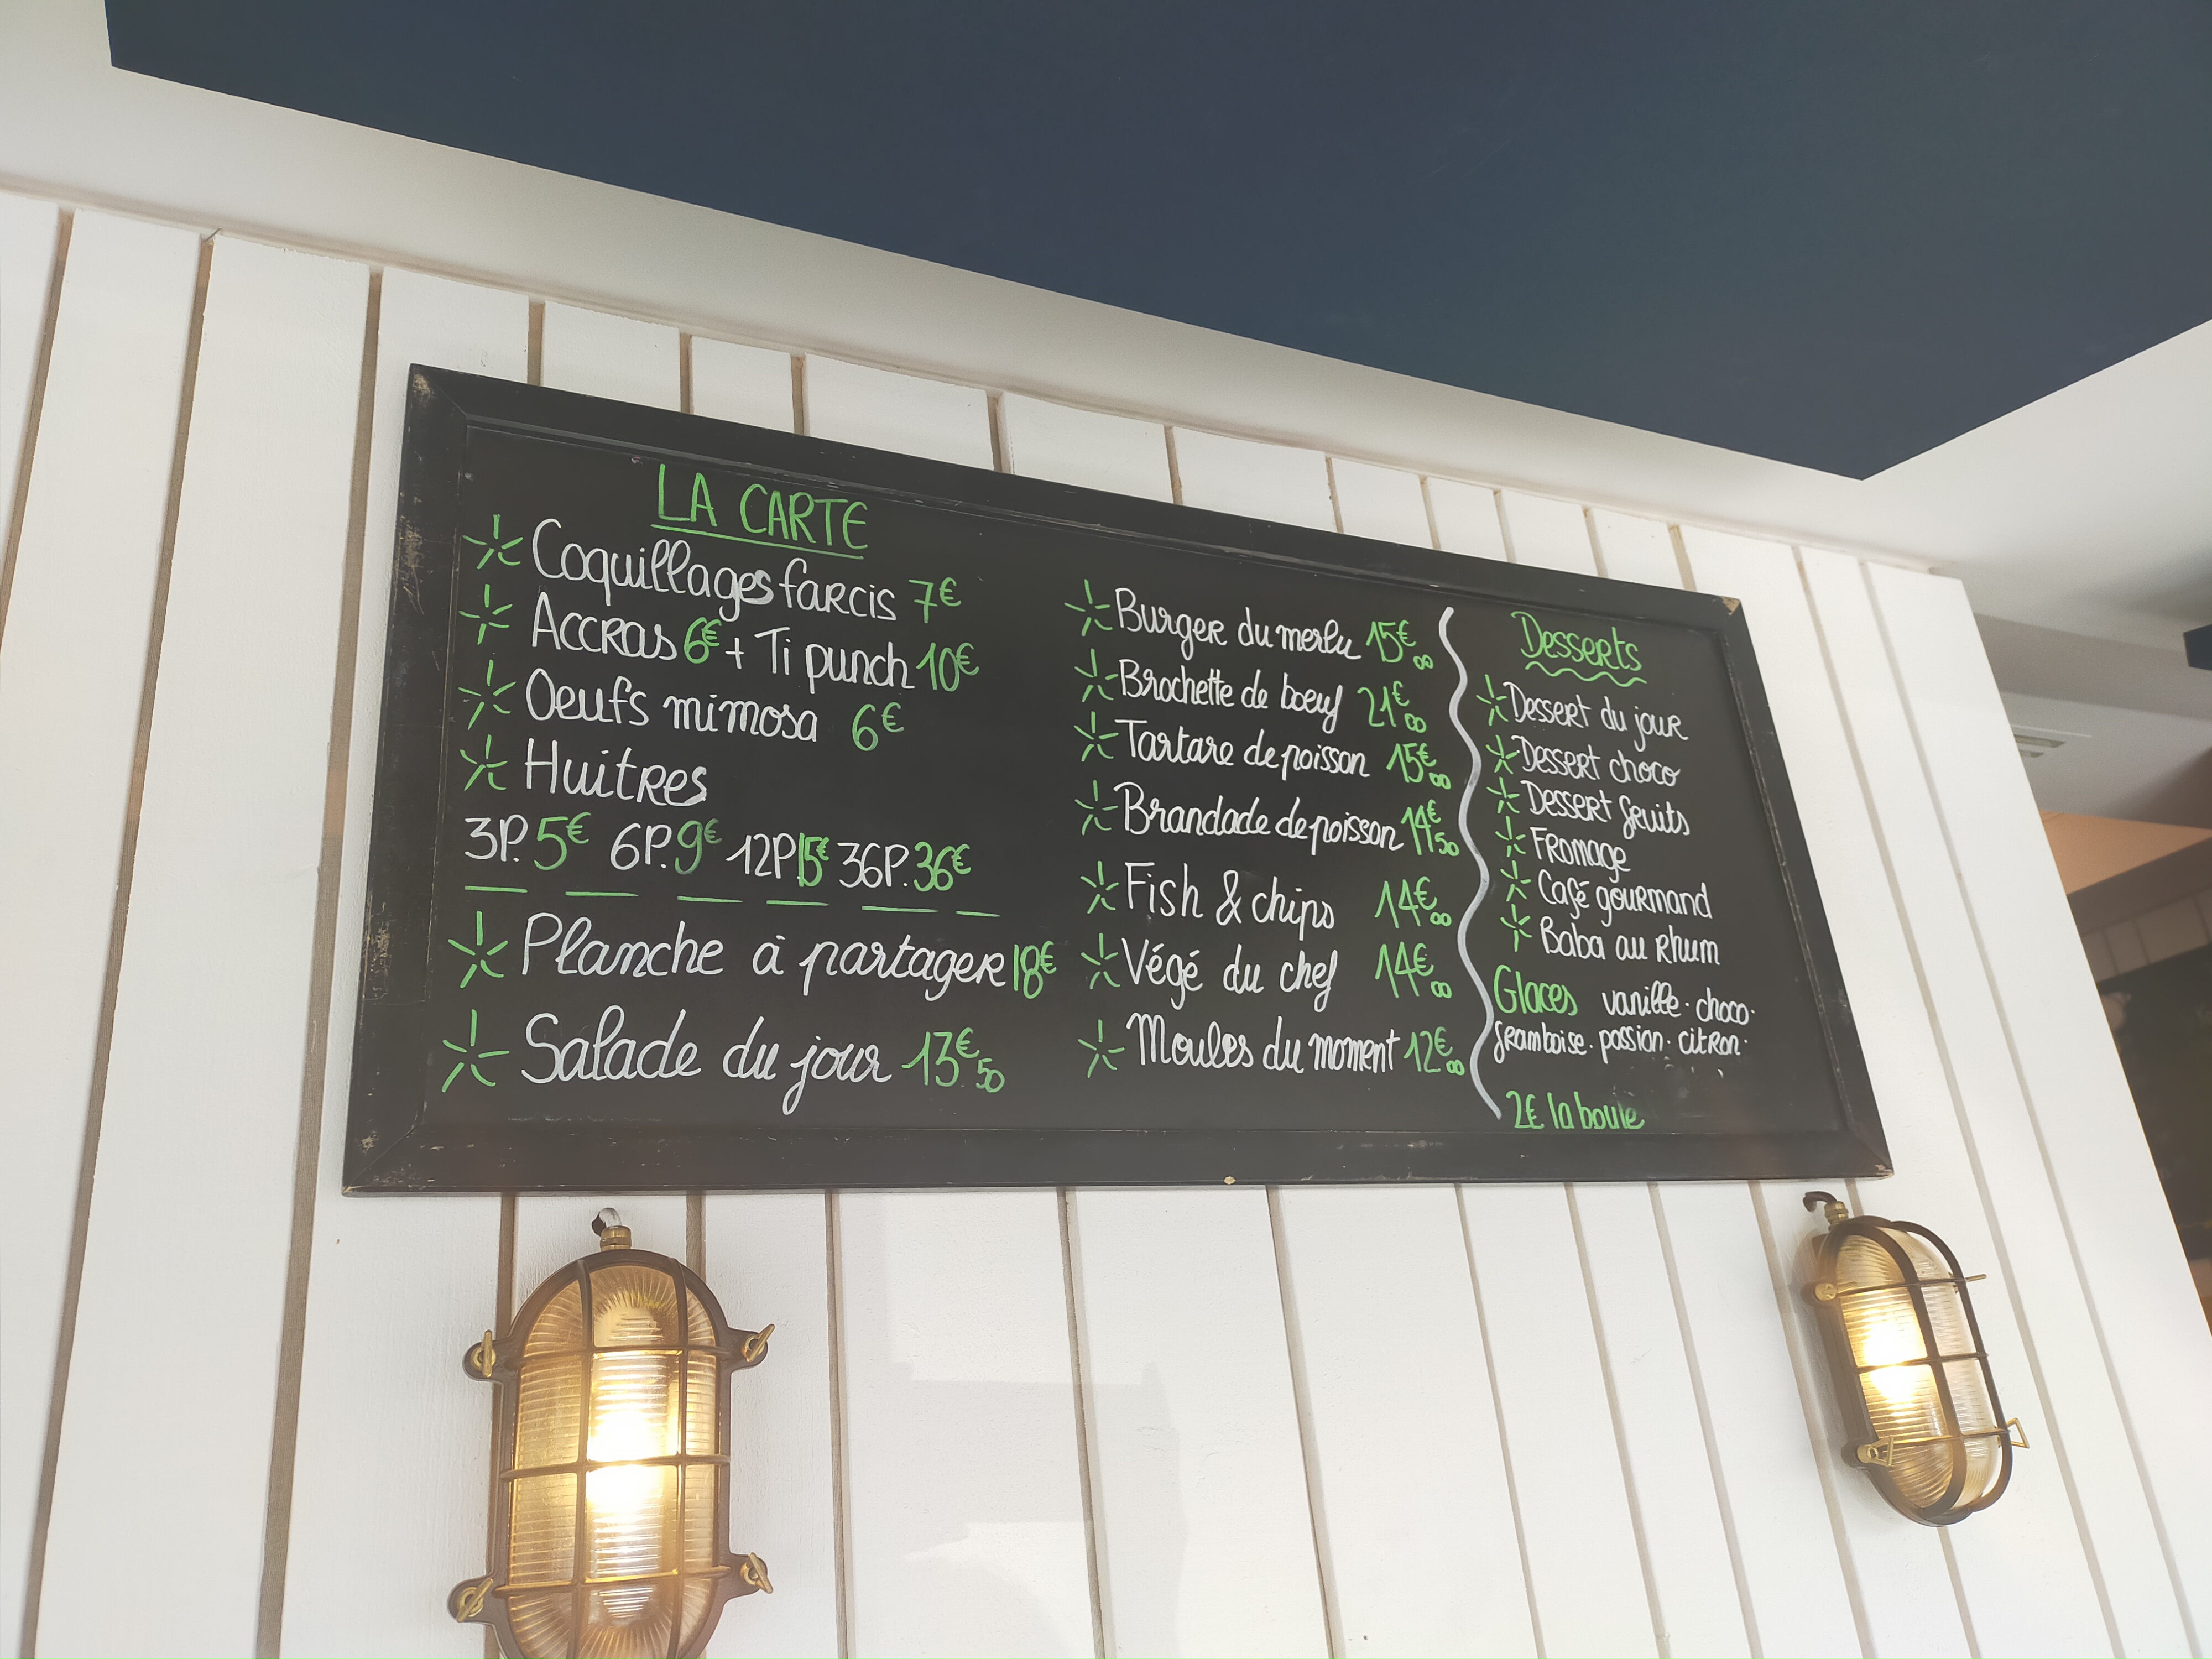 LA CARTE
Coquillages farcis 7€
Accras 6€ + Ti punch 10€
Oeufs mimosa 6€
Huitres
3P. 5€ 6P. 9€ 12P. 15€ 36P. 36€
Planche à partager 18€
Salade du jour 13€50
Burger du merlu 15€00
Brochette de boeuf 21€00
Tartare de poisson 15€00
Brandade de poisson 14€50
Fish & chips 14€00
Végé du chef 14€00
Moules du moment 12€00
Desserts
Dessert du jour
Dessert choco
Dessert fruits
Fromage
Café gourmand
Baba au rhum
Glaces vanille · choco ·
framboise · passion · citron ·
2€ la boule